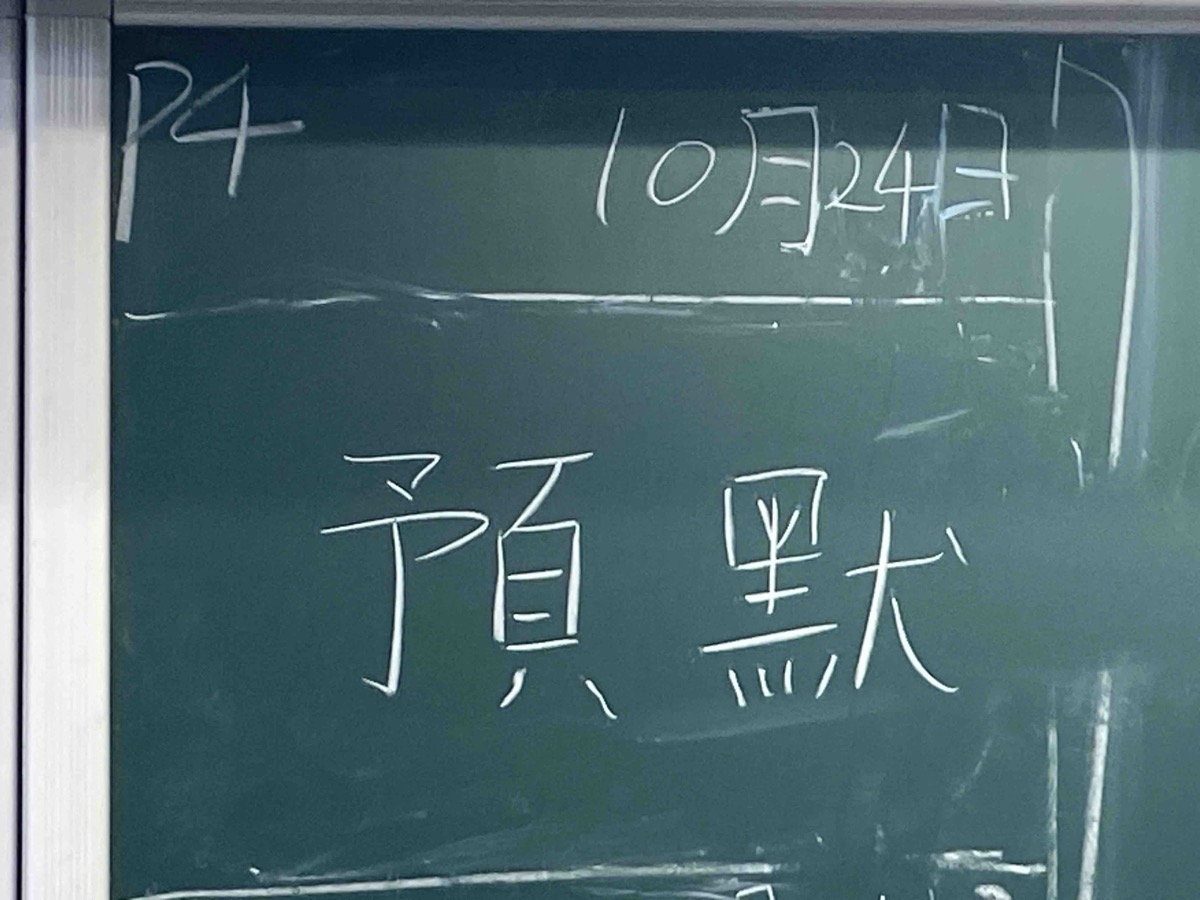 P4 10月24日
預 默